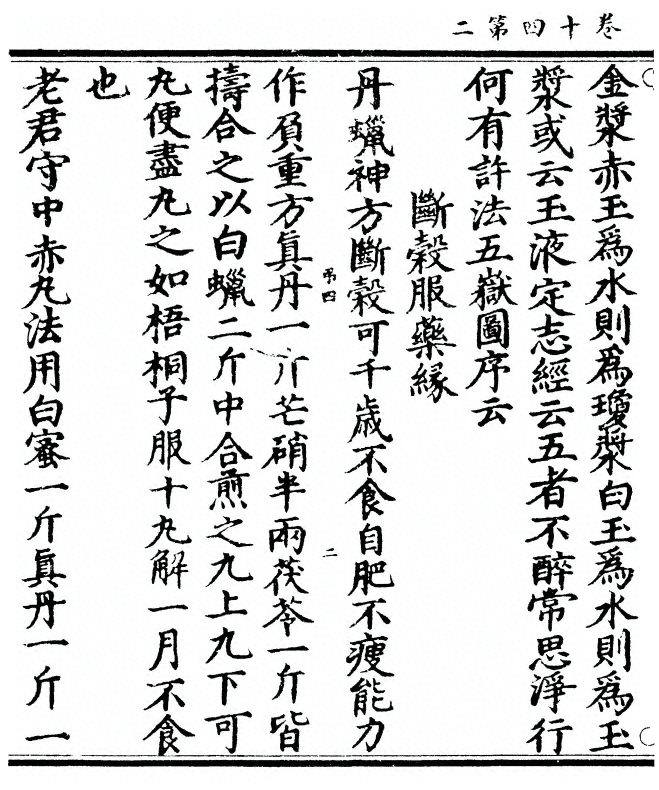 卷十四第二
金漿赤玉爲水則爲瓊漿白玉爲水則爲玉
漿或云玉液定志經云五者不醉常思淨行
何有許法五嶽圖序云
斷穀服藥緣
丹蠟神方斷穀可千歲不食自肥不瘦能力
弔四
二
作負重方眞丹一斤芒硝半兩茯苓一斤皆
擣合之以白蠟二斤中合煎之九上九下可
丸便盡丸之如梧桐子服十丸解一月不食
也
老君守中赤丸法用白蜜一斤眞丹一斤一